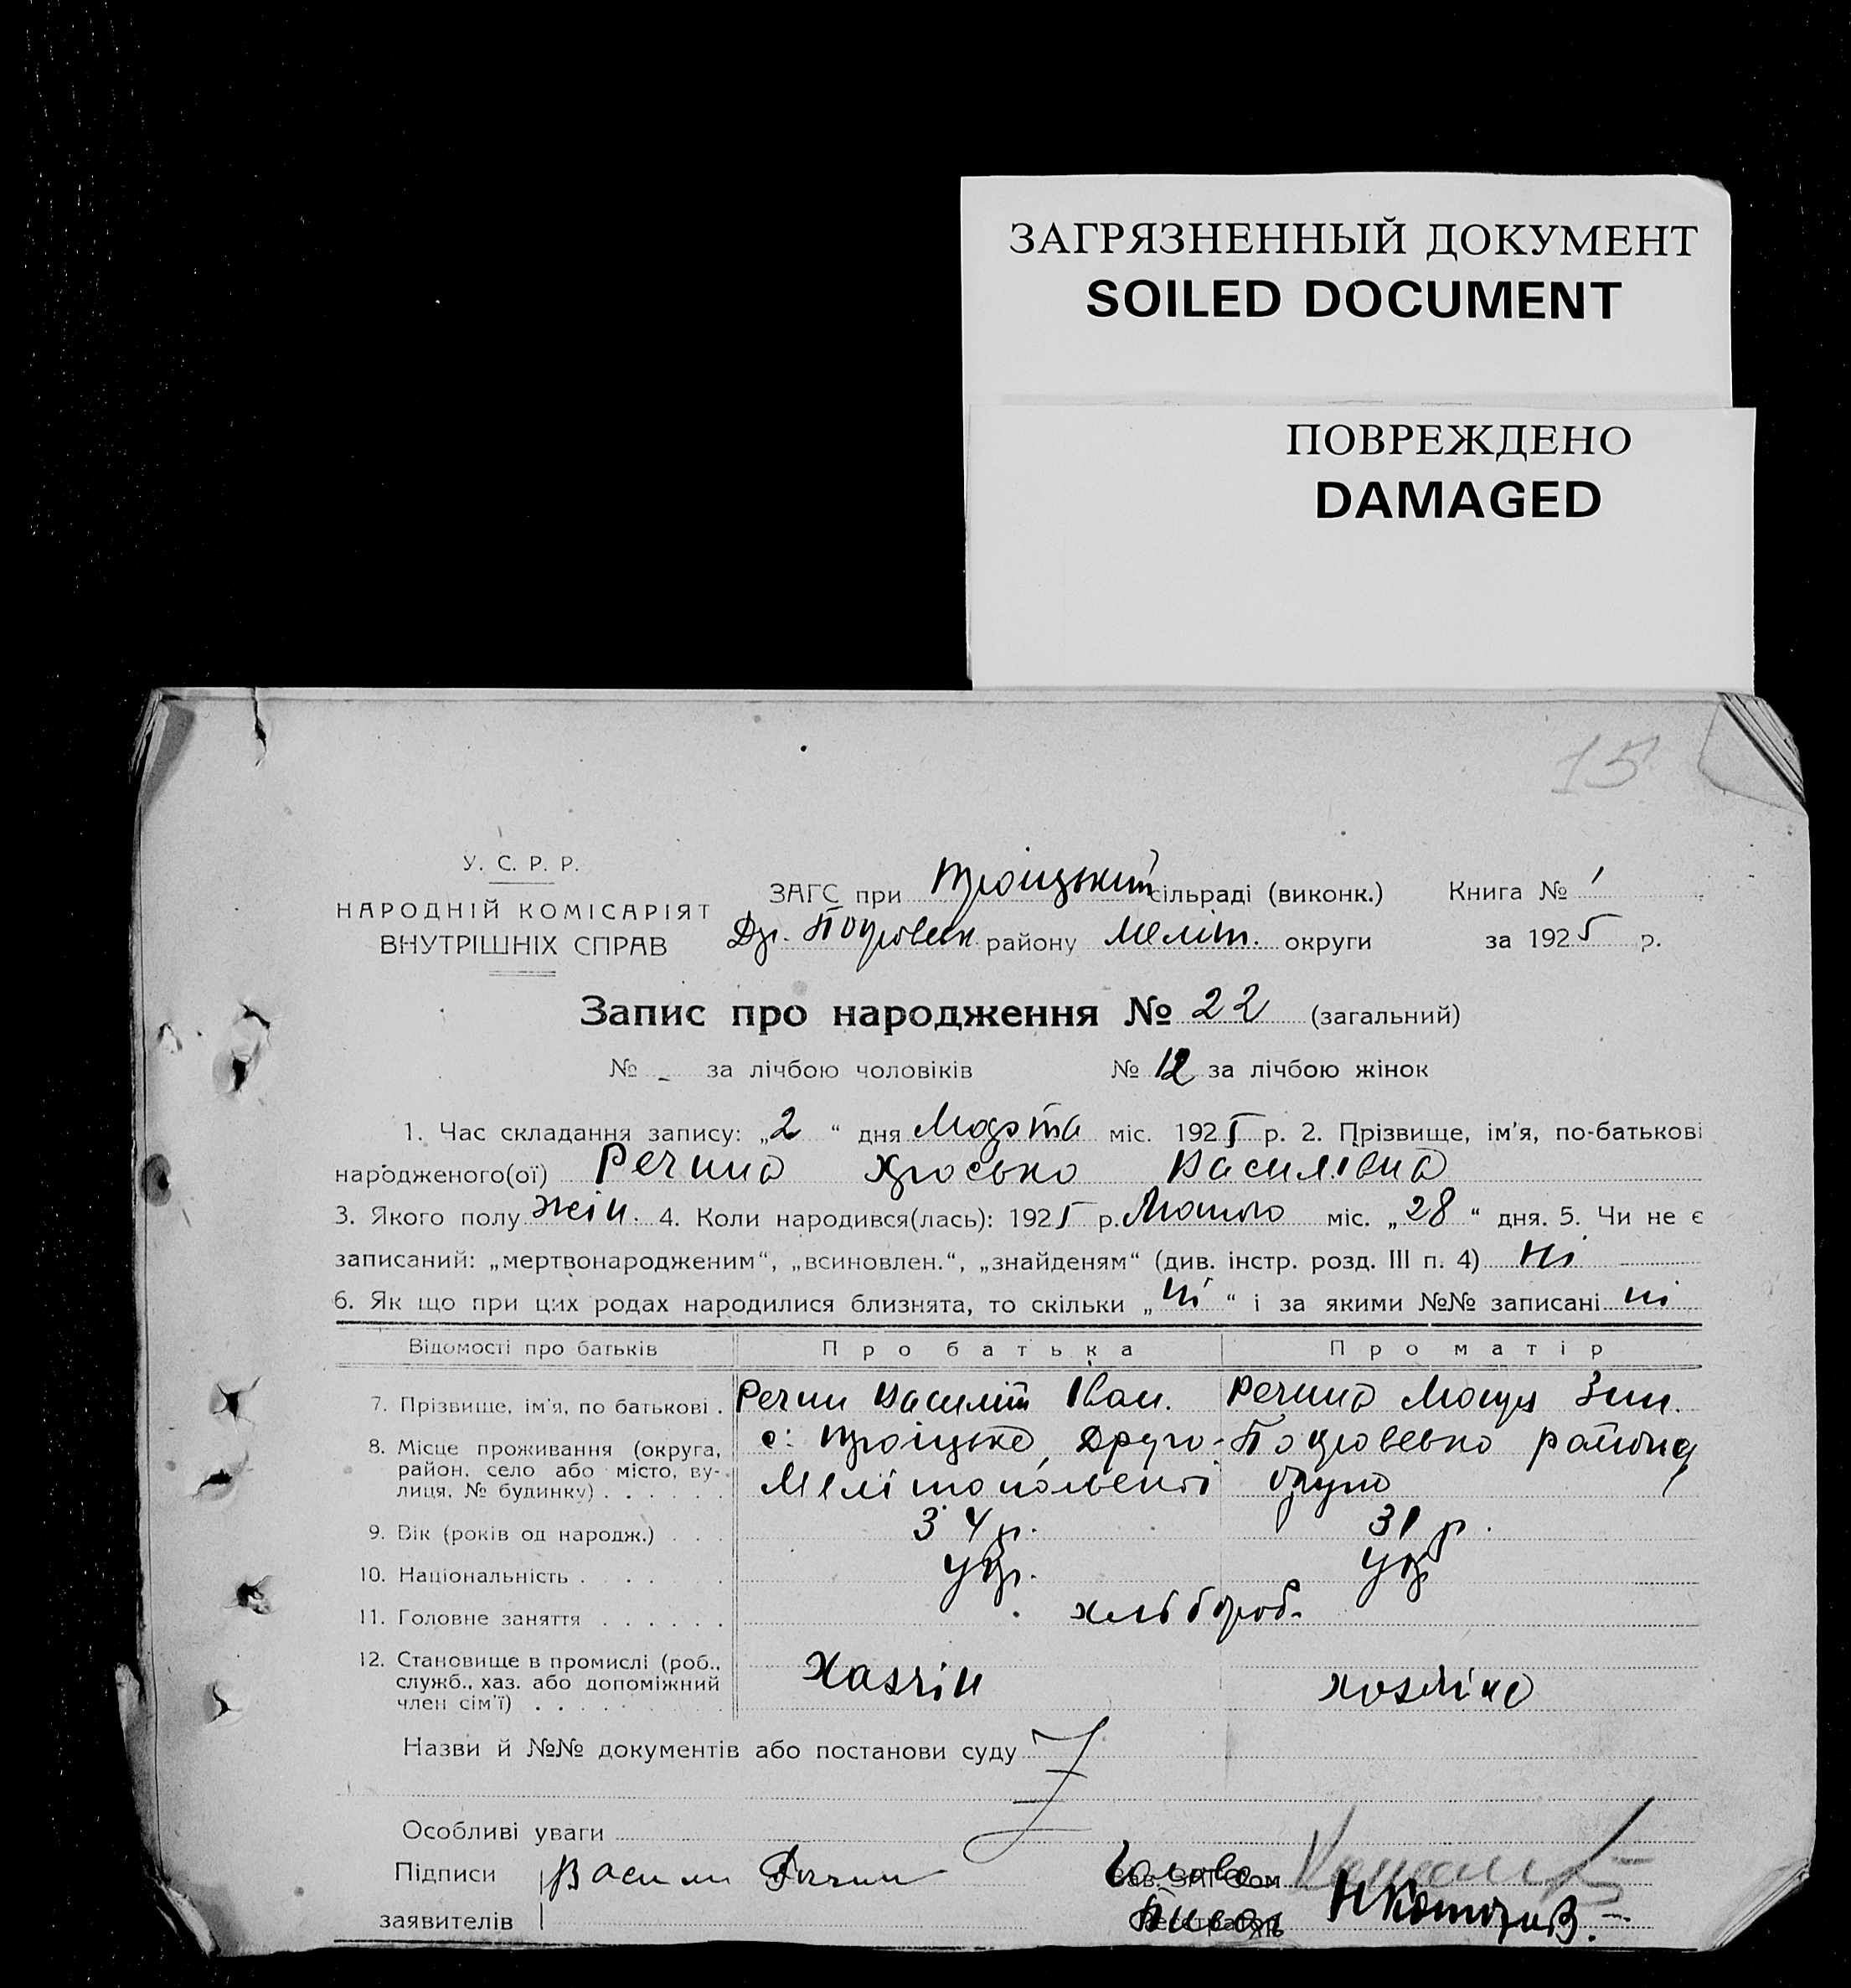 ЗАГРЯЗНЕННЫЙ ДОКУМЕНТ
SOILED DOCUMENT
ПОВРЕЖДЕНО
DAMAGED
15
У. С. Р. Р.
НАРОДНІЙ КОМІСАРІЯТ
ВНУТРІШНІХ СПРАВ
ЗАГС при Троіцький сільраді (виконк.) Книга № 1
Др. Покровськ району Меліт. округи за 1925 р.
Запис про народження № 22 (загальний)
№ - за лічбою чоловіків № 12 за лічбою жінок
1. Час складання запису: „2“ дня Марта міс. 1925 р. 2. Прізвище, ім'я, по-батькові
народженого(ої) Речина Василівна
3. Якого полу жін. 4. Коли народився(лась): 1925 р. міс. „28“ дня. 5. Чи не є
записаний: „мертвонародженим“, „всиновлен.“, „знайденям“ (див. інстр. розд. III п. 4) ні
6. Як що при цих родах народилися близнята, то скільки „ні“ і за якими №№ записані ні
Відомості про батьків Про батька Про матір
7. Прізвище, ім'я, по батькові . Речин Василій Іван. Речина Зин.
8. Місце проживання (округа, район, село або місто, вулиця, № будинку) с. Троіцьке, Друго-Покровсько району
Мелітопольскоі округи
9. Вік (років од народж.) 34 р. 31 р.
10. Національність . укр. укр
11. Головне заняття хлібороб.
12. Становище в промислі (роб., служб., хаз. або допоміжний член сім'ї) хазяін хозяіка
Назви й №№ документів або постанови суду
Особливі уваги
Підписи Василий Речин Голова
заявителів